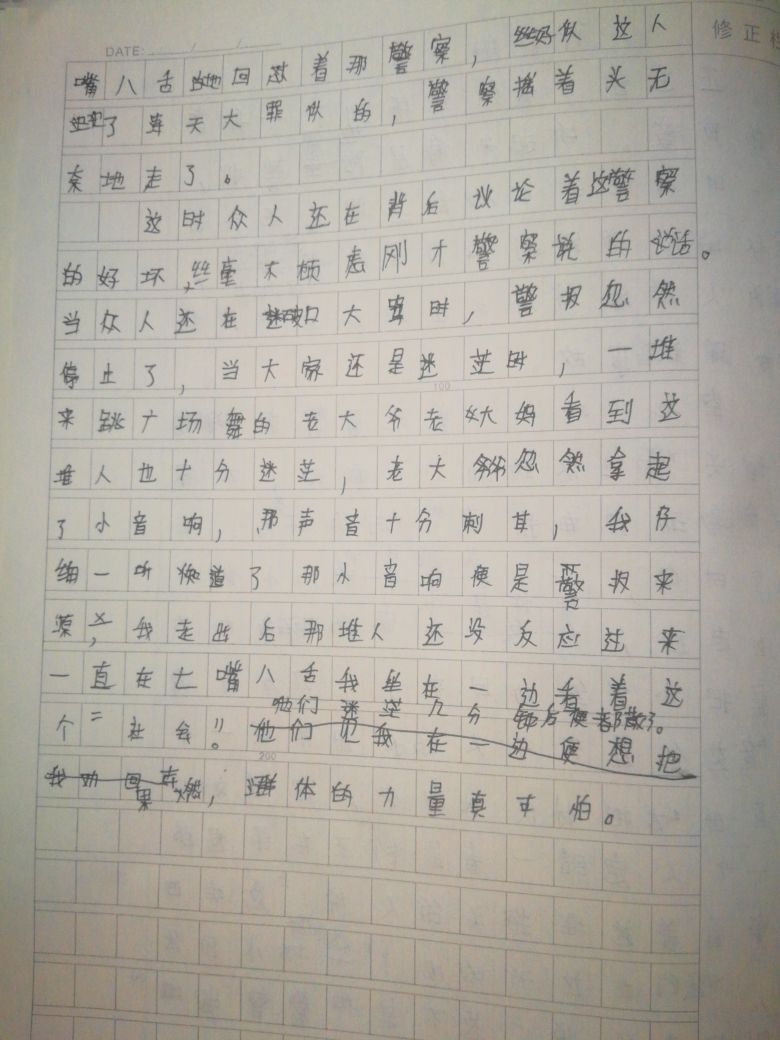 DATE: / /
修正栏
嘴八舌地回怼着那警察，好似这人
犯了弥天大罪似的，警察摇着头无
奈地走了。
这时众人还在背后议论着这警察
的好坏丝毫不顾虑刚才警察说的话。
当众人还在破口大骂时，警报忽然
停止了，当大家还是迷茫时，一堆
来跳广场舞的老大爷老大妈看到这
堆人也十分迷茫，老大爷忽然拿起
了小音响，那声音十分刺耳，我仔
细一听知道了那小音响便是警报来
源，我走出后那堆人还没反应过来
一直在七嘴八舌我坐在一边看着这
他们迷茫几分钟后便都散了。
个"社会"。他们见我在一边便想把
我劝回去
果然，群体的力量真可怕。
100
200